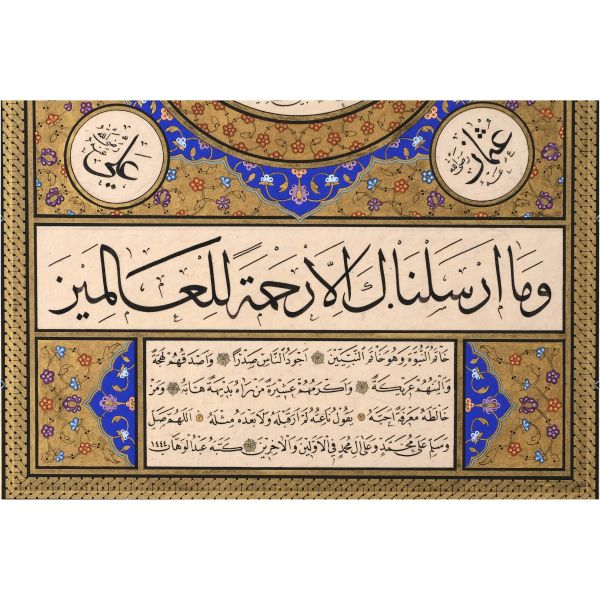 عثمان رضي الله عنه
علي رضي الله عنه
وما ارسلناك الا رحمة للعالمين
خاتم النبوة وهو خاتم النبيين اجود الناس صدرا واصدقهم لهجة
والينهم عريكة واكرمهم عشيرة من رآه بديهة هابه ومن
خالطه معرفة احبه يقول ناعته لم ار قبله ولا بعده مثله اللهم صل
وسلم على محمد وعلى آل محمد في الاولين والآخرين كتبه عبد الوهاب ١٤٤٤